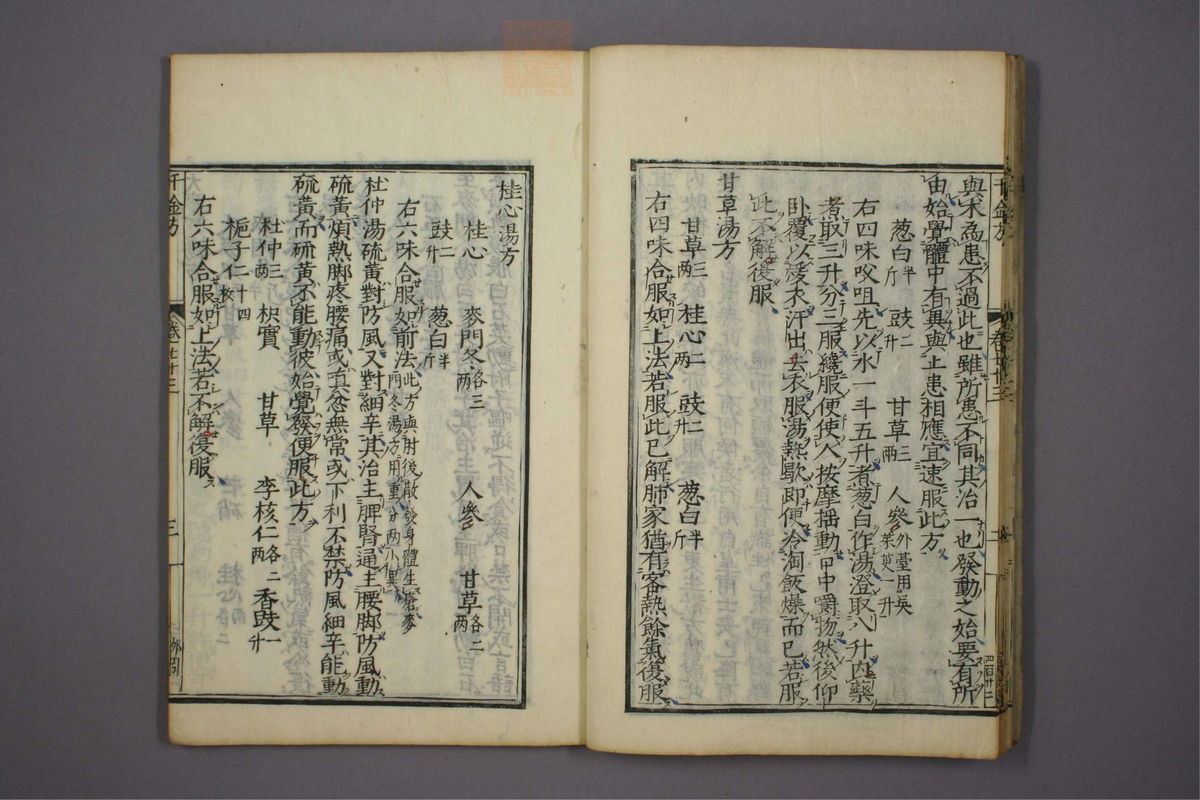 與术為患不過此也雖所患不同其治一也發動之始要有所
由始覺體中有異與上患相應宜速服此方
葱白半斤 豉二升 甘草三兩 人參外臺用吳茱萸一升
右四味㕮咀先以水一斗五升煮葱白作湯澄取八升內藥
煮取三升分三服纔服便使人按摩搖動口中嚼物然後仰
臥覆以暖衣汗出去衣服湯熱歇即便冷淘飯燥而已若服
此不解復服
甘草湯方
甘草三兩 桂心二兩 豉二升 葱白半斤
右四味合服如上法若服此已解肺家猶有客熱餘氣復服
桂心湯方
桂心 麥門冬各三兩 人參 甘草各二兩
豉二升 葱白半斤
右六味合服如前法此方與肘後散發身體生瘡麥門冬湯方用重分兩小異
杜仲湯硫黃對防風又對細辛其治主脾腎通主腰脚防風動
硫黃煩熱脚疼腰痛或嗔忿無常或下利不禁防風細辛能動
硫黃而硫黃不能動彼始覺發便服此方
杜仲三兩 枳實 甘草 李核仁各二兩 香豉一升
梔子仁十四枚
右六味合服如上法若不解復服
千金方
三